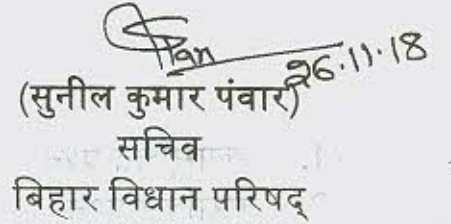 26.11.18
(सुनील कुमार पंवार)
सचिव
बिहार विधान परिषद्